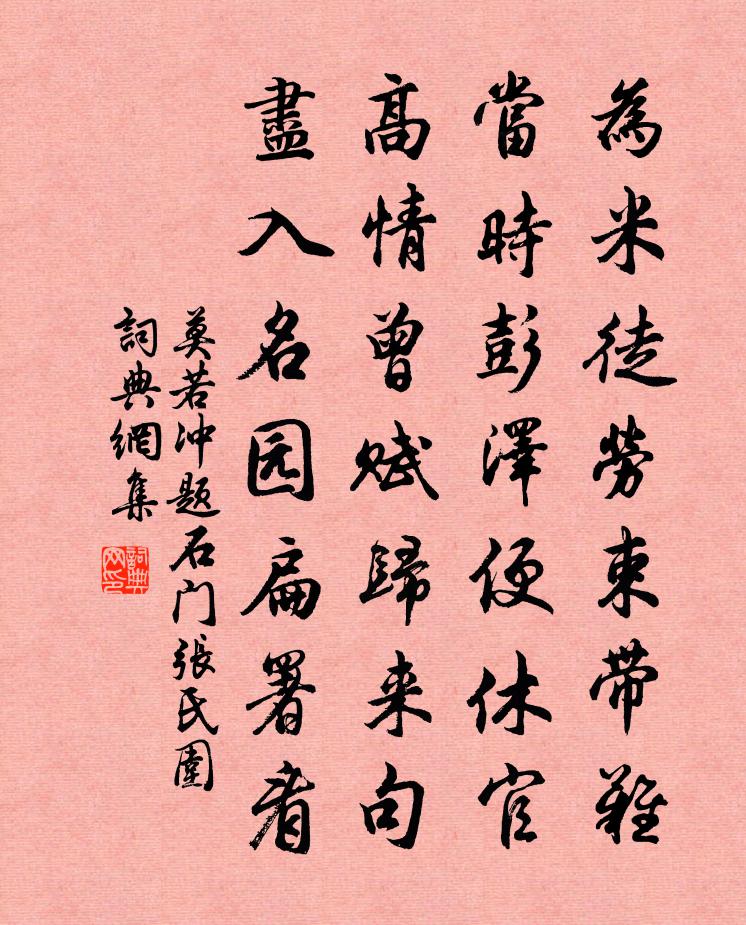 為米徒勞束帶難
當時彭澤便休官
高情曾賦歸来句
盡入名园扁署看
莫若冲题石门張氏園
詞典網集
詞典网印